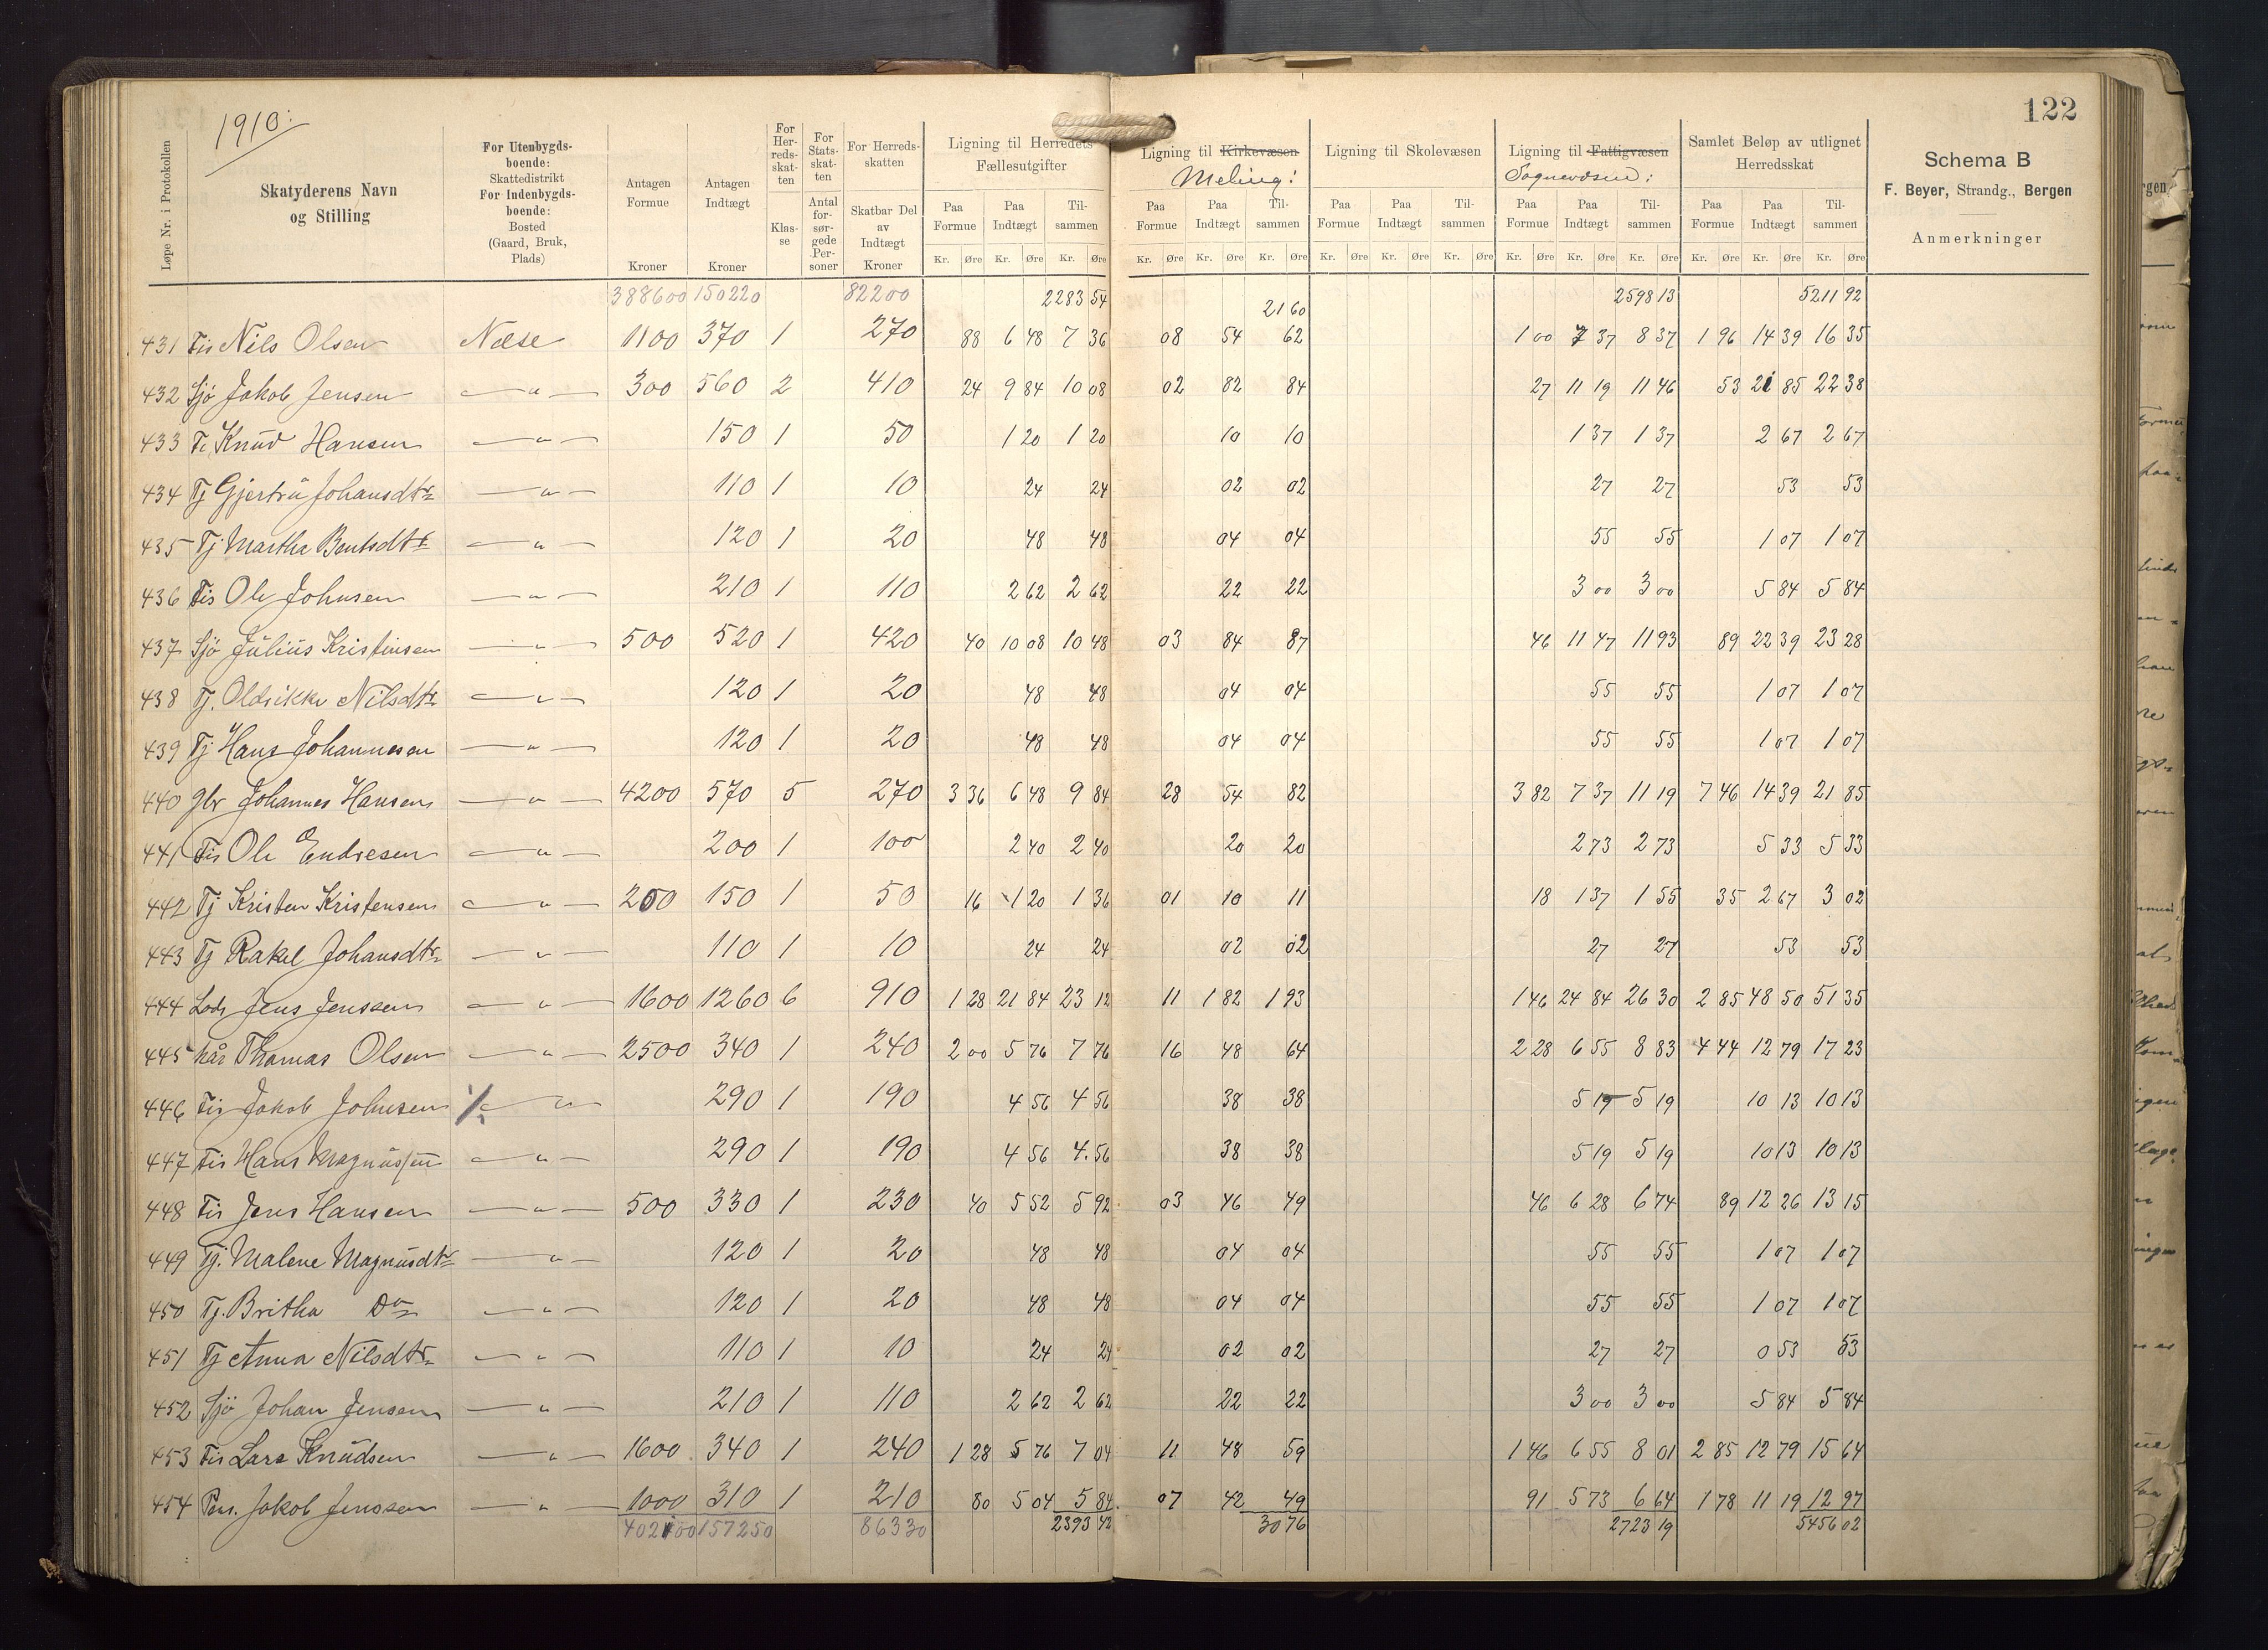 1910:
122
Løpe Nr. i Protokollen
Skatyderens Navn og Stilling
For Utenbygds-boende: Skattedistrikt For Indenbygds-boende: Bosted (Gaard, Bruk, Plads)
Antagen Formue Kroner
Antagen Indtægt Kroner
For Her-reds-skat-ten Klas-se
For Stats-skat-ten Antal for-sør-gede Per-soner
For Herreds-skatten Skatbar Del av Indtægt Kroner
Ligning til Herredets Fællesutgifter
Ligning til Kirkevæsen Meling:
Ligning til Skolevæsen
Ligning til Fattigvæsen Sognevæsen:
Samlet Beløp av utlignet Herredsskat
Schema B
F. Beyer, Strandg., Bergen
Anmerkninger
Paa Formue Paa Indtægt Til-sammen Paa Formue Paa Indtægt Til-sammen Paa Formue Paa Indtægt Til-sammen Paa Formue Paa Indtægt Til-sammen Paa Formue Paa Indtægt Til-sammen
Kr. Øre Kr. Øre Kr. Øre Kr. Øre Kr. Øre Kr. Øre Kr. Øre Kr. Øre Kr. Øre Kr. Øre Kr. Øre Kr. Øre Kr. Øre Kr. Øre Kr. Øre
388600 150220 82200 2283 54 21 60 2598 13 5211 92
431 Fis Nils Olsen Næse 1100 370 1 270 88 6 48 7 36 08 54 62 1 00 7 37 8 37 1 96 14 39 16 35
432 Sjö Jakob Jensen — " — 300 560 2 410 24 9 84 10 08 02 82 84 27 11 19 11 46 53 21 85 22 38
433 Knud Hansen — " — 150 1 50 1 20 1 20 10 10 1 37 1 37 2 67 2 67
434 Tj Gjertrü Johansdtr — " — 110 1 10 24 24 02 02 27 27 53 53
435 Tj Martha Bentsdtr — " — 120 1 20 48 48 04 04 55 55 1 07 1 07
436 Fis Ole Johnsen — " — 210 1 110 2 62 2 62 22 22 3 00 3 00 5 84 5 84
437 Sjö Julius Kristinsen — " — 500 520 1 420 40 10 08 10 48 03 84 87 46 11 47 11 93 89 22 39 23 28
438 Tj. Oldrikke Nilsdtr — " — 120 1 20 48 48 04 04 55 55 1 07 1 07
439 Tj Hans Johannesen — " — 120 1 20 48 48 04 04 55 55 1 07 1 07
440 gbr Johannes Hansen — " — 4200 570 5 270 3 36 6 48 9 84 28 54 82 3 82 7 37 11 19 7 46 14 39 21 85
441 Fis Ole O Endresen — " — 200 1 100 2 40 2 40 20 20 2 73 2 73 5 33 5 33
442 Tj Kristen Kristensen — " — 200 150 1 50 16 1 20 1 36 01 10 11 18 1 37 1 55 35 2 67 3 02
443 Tj Rakel Johansdtr — " — 110 1 10 24 24 02 02 27 27 53 53
444 Lods Jens Jenssen — " — 1600 1260 6 910 1 28 21 84 23 12 11 1 82 1 93 1 46 24 84 26 30 2 85 48 50 51 35
445 kår Thomas Olsen — " — 2500 340 1 240 2 00 5 76 7 76 16 48 64 2 28 6 55 8 83 4 44 12 79 17 23
446 Fis Jakob Johnsen — " — 290 1 190 4 56 4 56 38 38 5 19 5 19 10 13 10 13
447 Fis Hans Magnussen — " — 290 1 190 4 56 4.56 38 38 5 19 5 19 10 13 10 13
448 Fis Jens Hansen — " — 500 330 1 230 40 5 52 5 92 03 46 49 46 6 28 6 74 89 12 26 13 15
449 Tj. Malene Magnusdtr — " — 120 1 20 48 48 04 04 55 55 1 07 1 07
450 Tj. Britha Do — " — 120 1 20 48 48 04 04 55 55 1 07 1 07
451 Tj Anna Nilsdtr — " — 110 1 10 24 24 02 02 27 27 0 53 53
452 Sjö Johan Jensen — " — 210 1 110 2 62 2 62 22 22 3 00 3 00 5 84 5 84
453 Fis Lars Knudsen — " — 1600 340 1 240 1 28 5 76 7 04 11 48 59 1 46 6 55 8 01 2 85 12 79 15 64
454 Pens. Jakob Jenssen — " — 1000 310 1 210 80 5 04 5 84 07 42 49 91 5 73 6 64 1 78 11 19 12 97
402100 157250 86330 2393 42 30 76 2723 19 5456 02